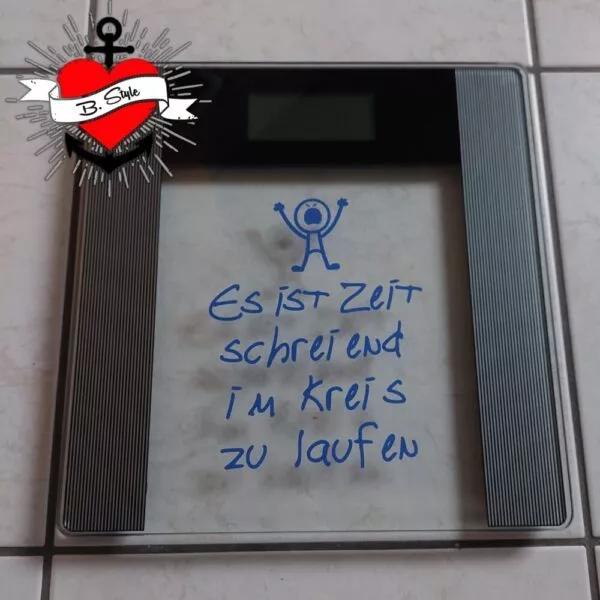 B. Style
Es ist Zeit
schreiend
im Kreis
zu laufen